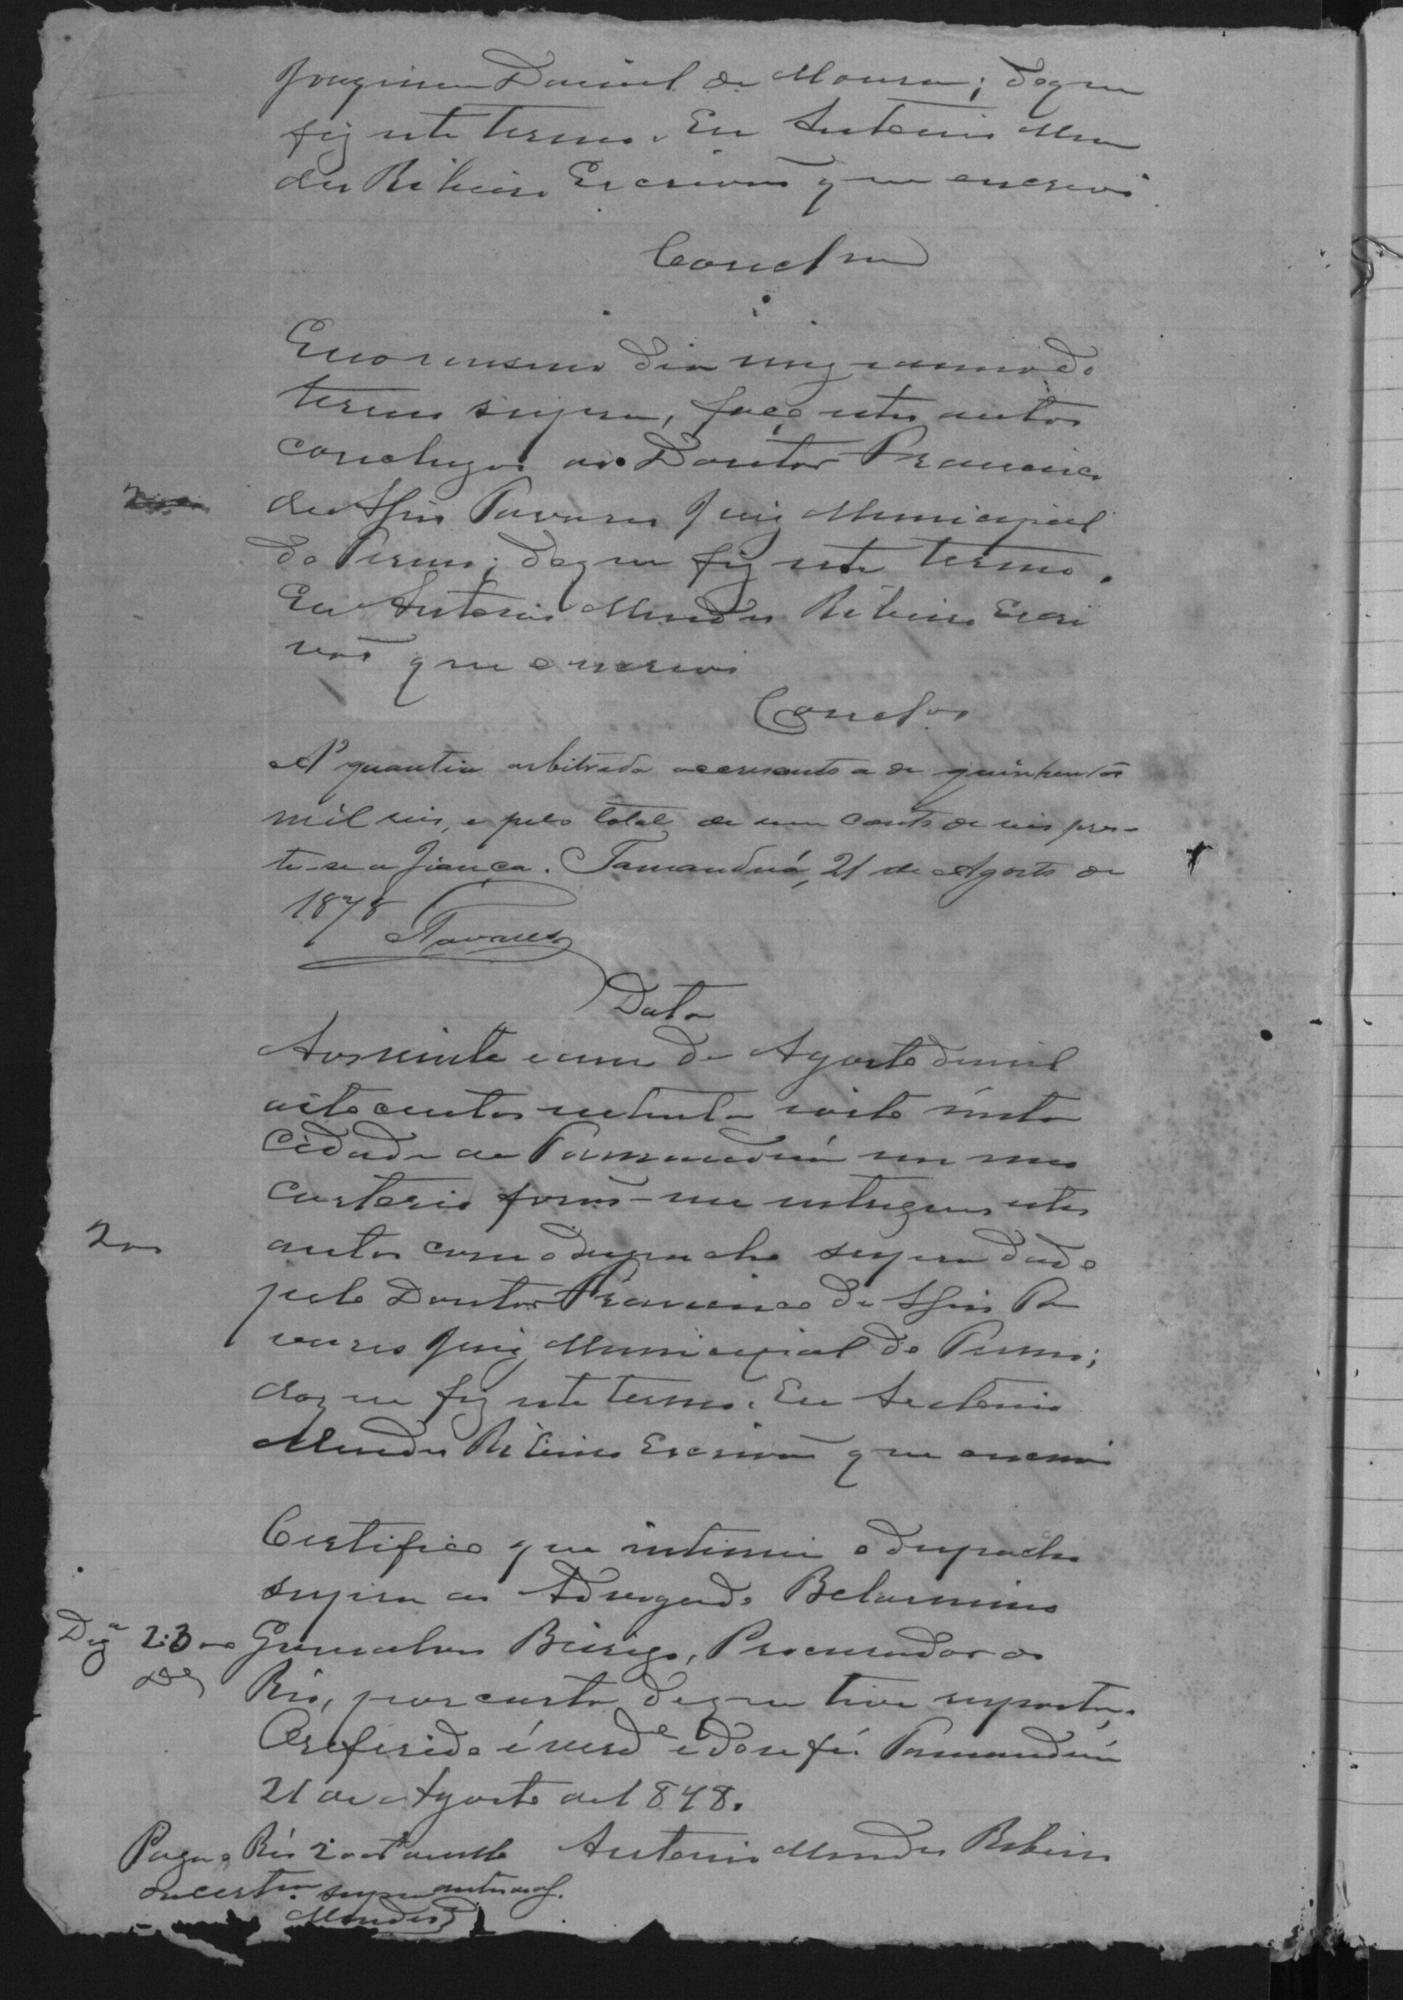 Joaquim Daniel de Moura; do que
fiz este termo. Eu Antonio Men
des Ribeiro Escrivaõ que escrevi
Conclsm
E no mesmo dia mez e anno do
termo supra, faço estes autos
concluzos ao Doutor Francisco
de Assis Tavares Juiz Municipal
do Termo; do que fiz este termo.
Eu Antonio Mendes Ribeiro Escri
vaõ que escrevi
Conclos
A' quantia arbitrada accrescento a de quinhentos
mil reis, e pelo total de um conto de reis pres-
te-se a fiança. Tamanduá, 21 de Agosto de
1878
Tavares
Data
Aos vinte e um de Agosto de mil
oito centos setenta e oito n'esta
Cidade de Tamanduá em meu
cartorio foraõ-me entregues estes
200
autos com o despacho supra dado
pelo Doutor Francisco de Assis Ta
vares Juiz Municipal do Termo;
do que fiz este termo. Eu Antonio
Mendes Ribeiro Escrivaõ que escrevi
Certifico que intimei o despacho
supra ao Advogado Belarmino
Gonçalves, Procurador do
Réo, por carta de que tive resposta.
O referido é verd.e e dou fé. Tamanduá
21 de Agosto de 1878.
Antonio Mendes Ribeiro
Pagou Réo
Mendes